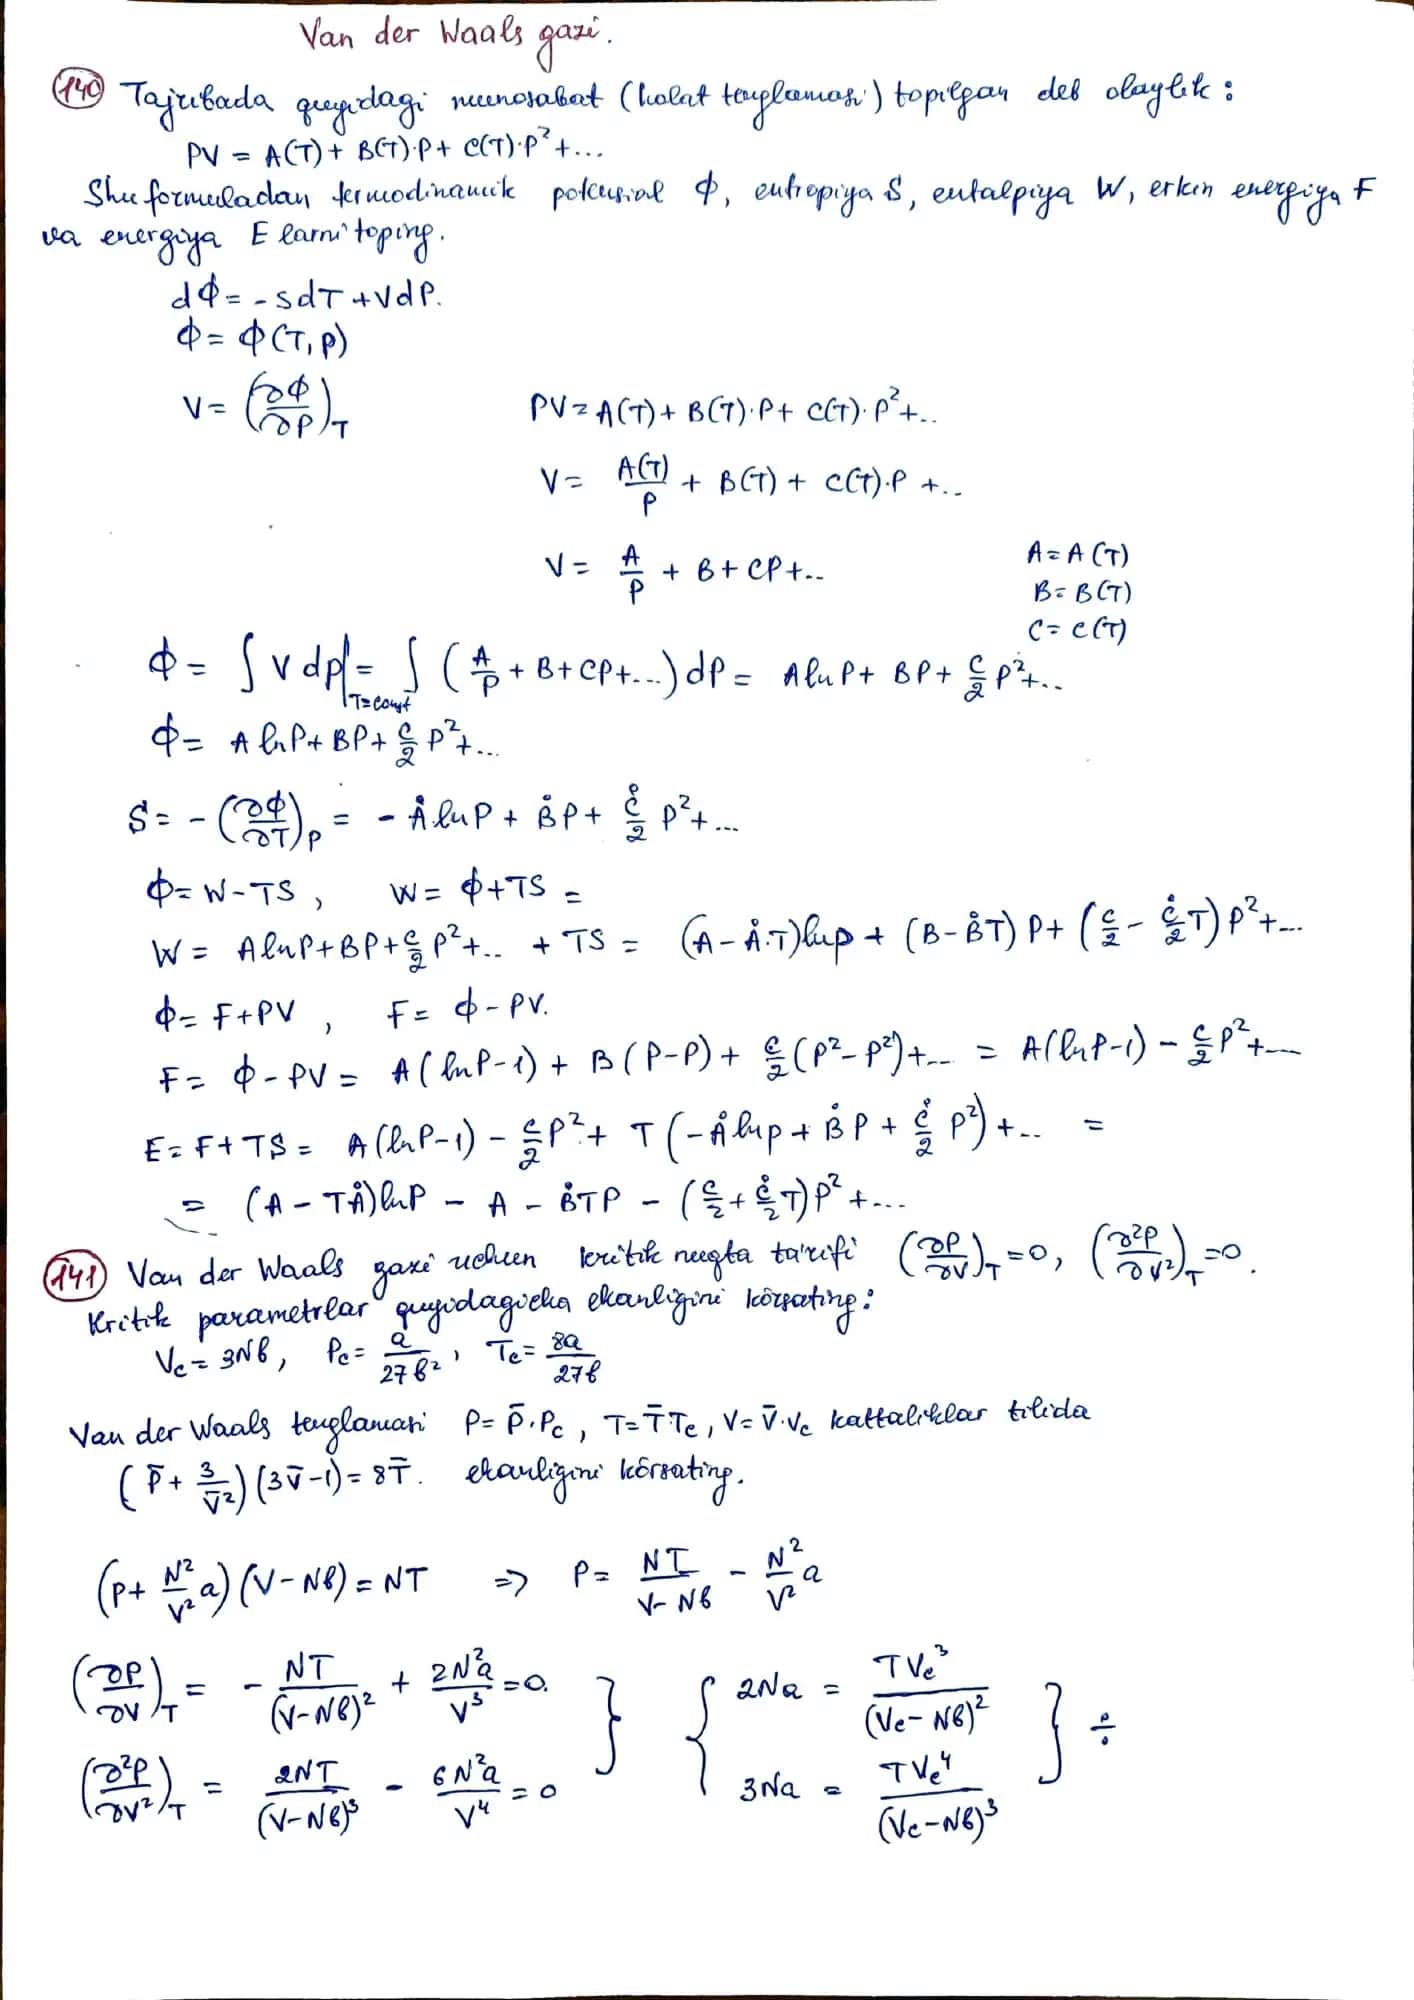 Van der Waals gazi.
140 Tajribada quyidagi munosabat (holat tenglamasi) topilgan deb olaylik:
PV = A(T) + B(T)·P + C(T)·P² + ...
Shu formuladan termodinamik potensial Φ, entropiya S, entalpiya W, erkin energiya F
va energiya E larni toping.
dΦ = - SdT + VdP.
Φ = Φ(T, P)
V = (∂Φ/∂P)_T PV = A(T) + B(T)·P + C(T)·P² + ..
V = A(T)/P + B(T) + C(T)·P + ..
V = A/P + B + CP + ..
A = A(T)
B = B(T)
C = C(T)
Φ = ∫ V dp |_{T=const} = ∫ (A/P + B + CP + ...) dP = A ln P + BP + C/2 P² + ..
Φ = A ln P + BP + C/2 P² + ...
S = - (∂Φ/∂T)_P = - Å ln P + B̊ P + C̊/2 P² + ...
Φ = W - TS, W = Φ + TS =
W = A ln P + BP + C/2 P² + .. + TS = (A - Å·T) ln p + (B - B̊T) P + (C/2 - C̊/2 T) P² + ...
Φ = F + PV, F = Φ - PV.
F = Φ - PV = A(ln P - 1) + B(P - P) + C/2 (P² - P²) + ... = A(ln P - 1) - C/2 P² + ...
E = F + TS = A(ln P - 1) - C/2 P² + T(- Å ln p + B̊ P + C̊/2 P²) + ... =
= (A - TÅ) ln P - A - B̊TP - (C/2 + C̊/2 T) P² + ...
141 Van der Waals gazi uchun kritik nuqta ta'rifi (∂P/∂V)_T = 0, (∂²P/∂V²)_T = 0.
Kritik parametrlar quyidagicha ekanligini körsating:
V_c = 3Nb, P_c = a/27b², T_c = 8a/27b
Van der Waals tenglamasi P = P̄·P_c, T = T̄·T_c, V = V̄·V_c kattaliklar tilida
(P̄ + 3/V̄²)(3V̄ - 1) = 8T̄. ekanligini körsating.
(P + N²/V² a)(V - Nb) = NT ⇒ P = NT/(V - Nb) - N²/V² a
(∂P/∂V)_T = - NT/(V - Nb)² + 2N²a/V³ = 0. } { 2Na = TV_c³/(V_c - Nb)² } ÷
(∂²P/∂V²)_T = 2NT/(V - Nb)³ - 6N²a/V⁴ = 0 3Na = TV_c⁴/(V_c - Nb)³